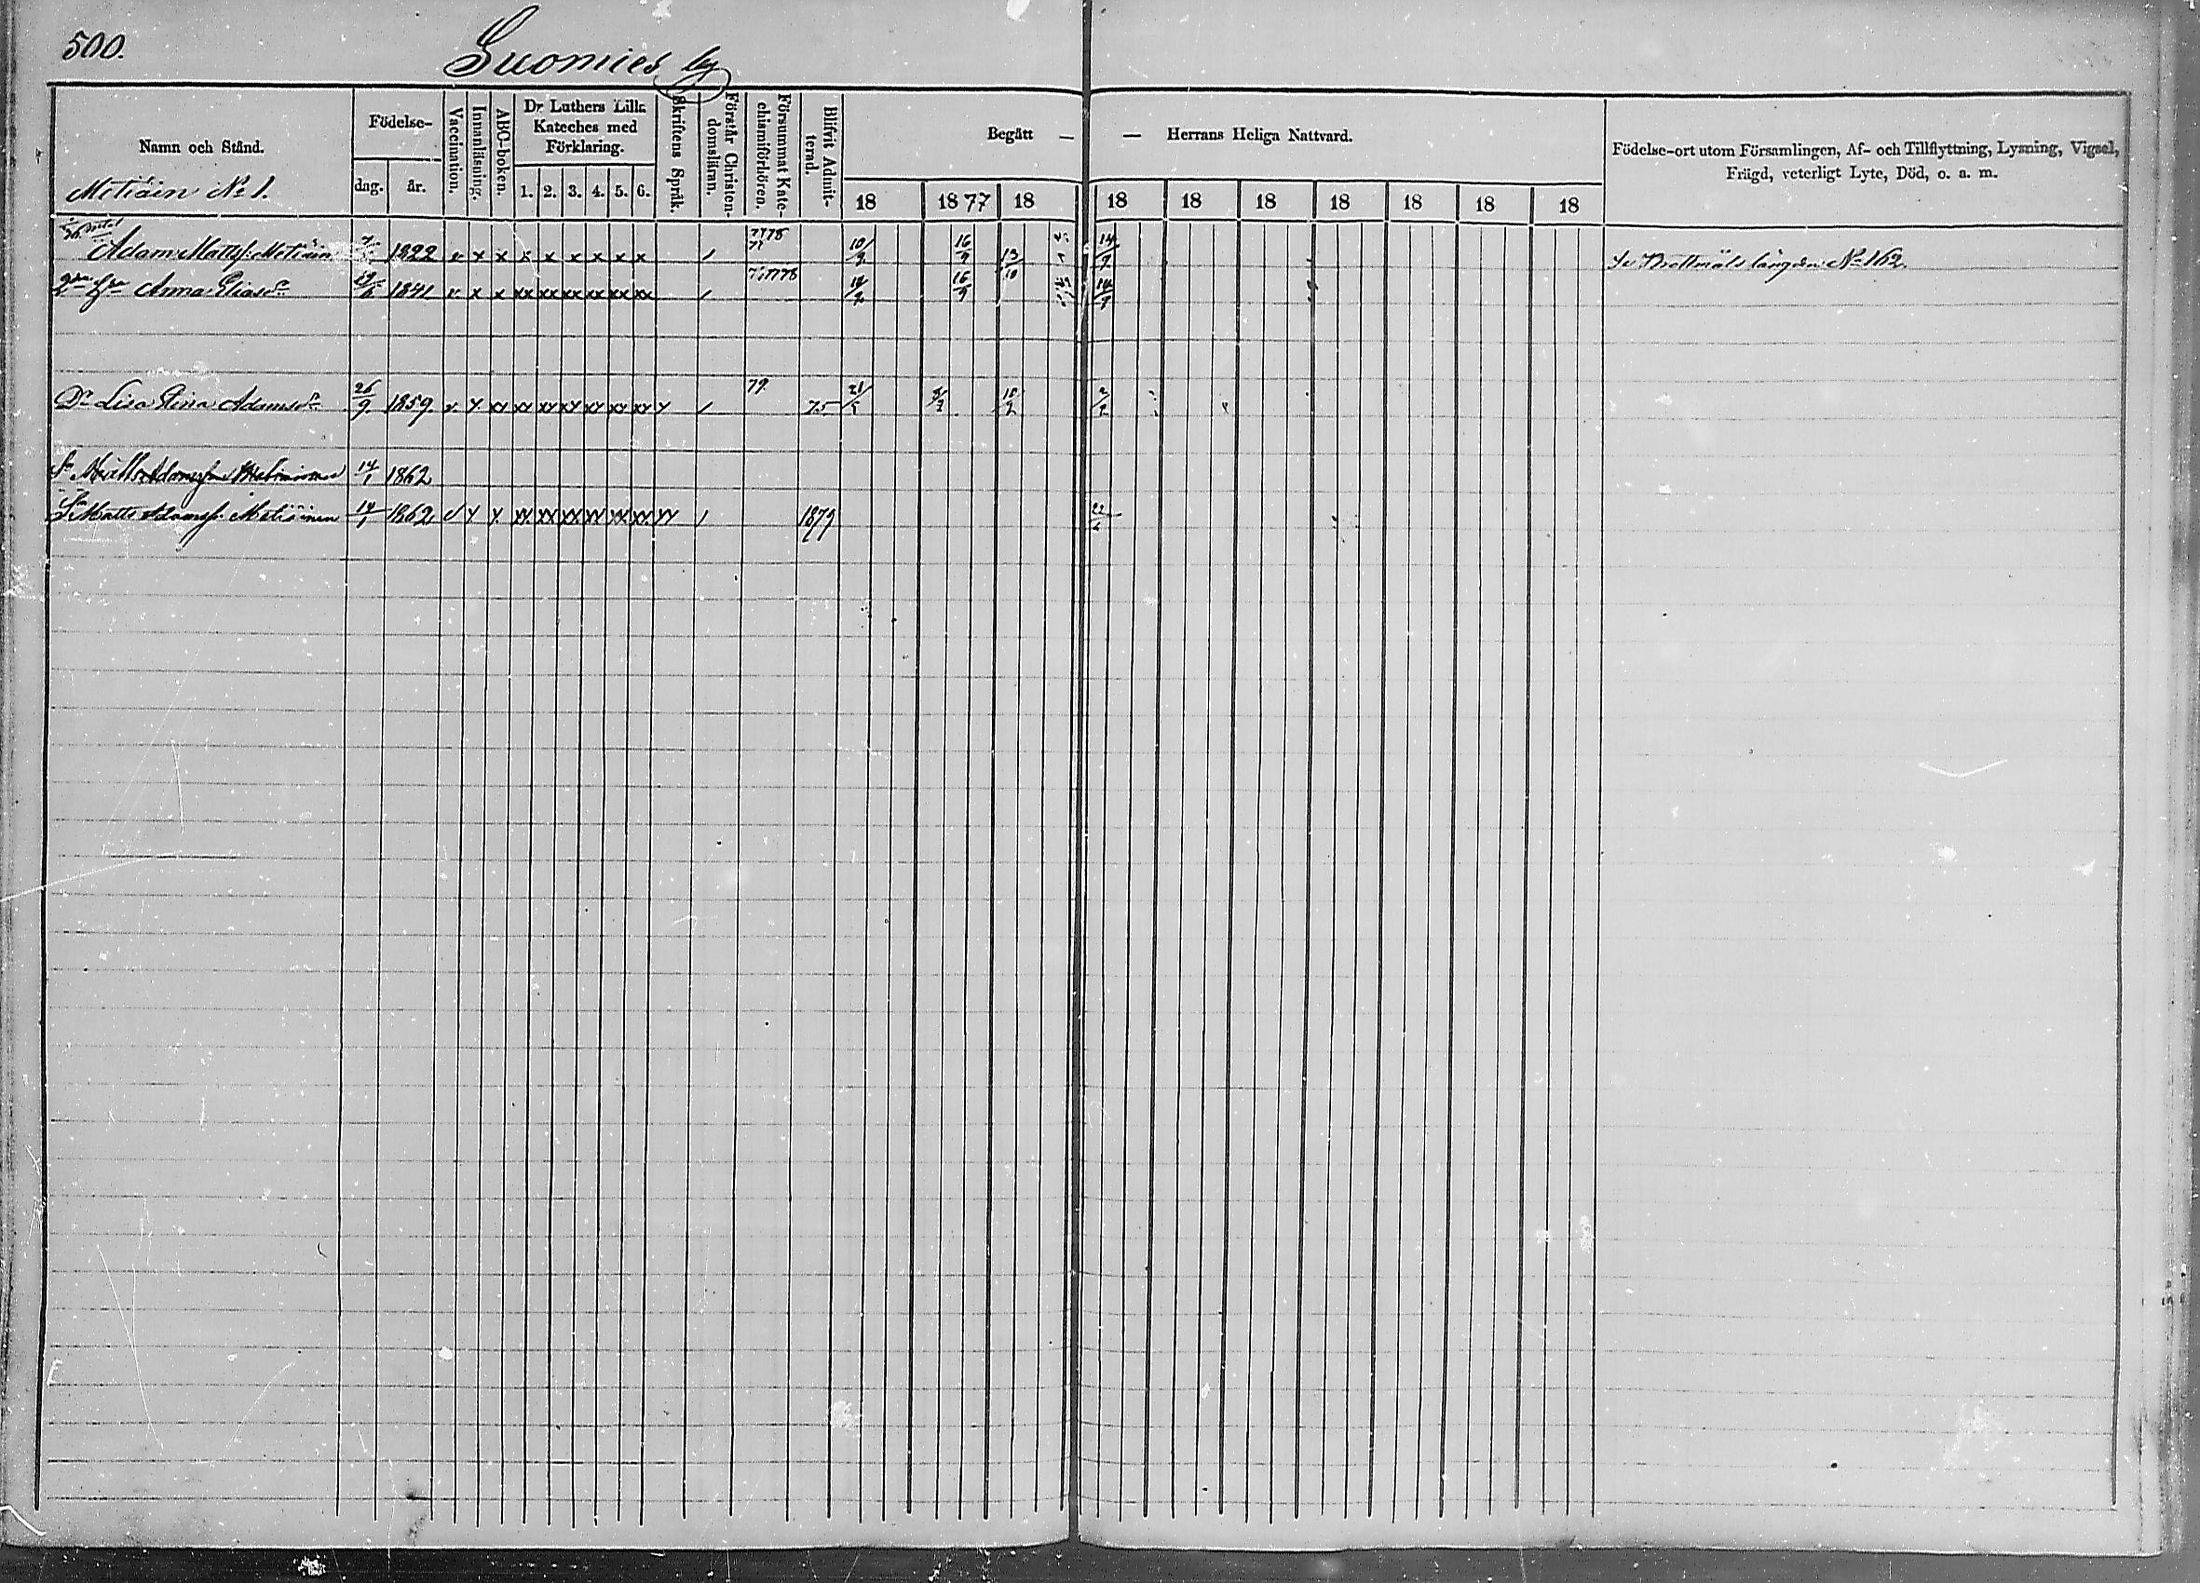 500.
Suomies by
Namn och Stånd.
Födelse-
dag. år.
Vaccination.
Innanläsning.
ABC-boken.
Dr Luthers Lilla Kateches med Förklaring.
1. 2. 3. 4. 5. 6.
Skriftens Språk.
Förstår Christen-domsläran.
Försummat Kate-chismiförhören.
Blifvit Admit-terad.
Begått — — Herrans Heliga Nattvard.
18 1877 18 18 18 18 18 18 18 18
Födelse-ort utom Församlingen, Af- och Tillflyttning, Lysning, Vigsel,
Frägd, veterligt Lyte, Död, o. a. m.
Metiäin No 1.
Adam Matts. Metiäin 1822 v x x x x x x x x 10/2 16/9 13/10 14/9 Se Brottmåls längden No 162.
Anna Eliasdr 1841 v x x xx xx xx xx xx xx 16/9 14/9
Dr Lisa Stina Adamsdr 26/9 1859 v x xx xx xx xx xx xx xx x 79. 75 21/5 10/2 2/2
Sn 14/1 1862
Sn Matts Adamss. Metiäinen 14/1 1862 v x x xx xx xx xx xx xx xx 1879 22/6